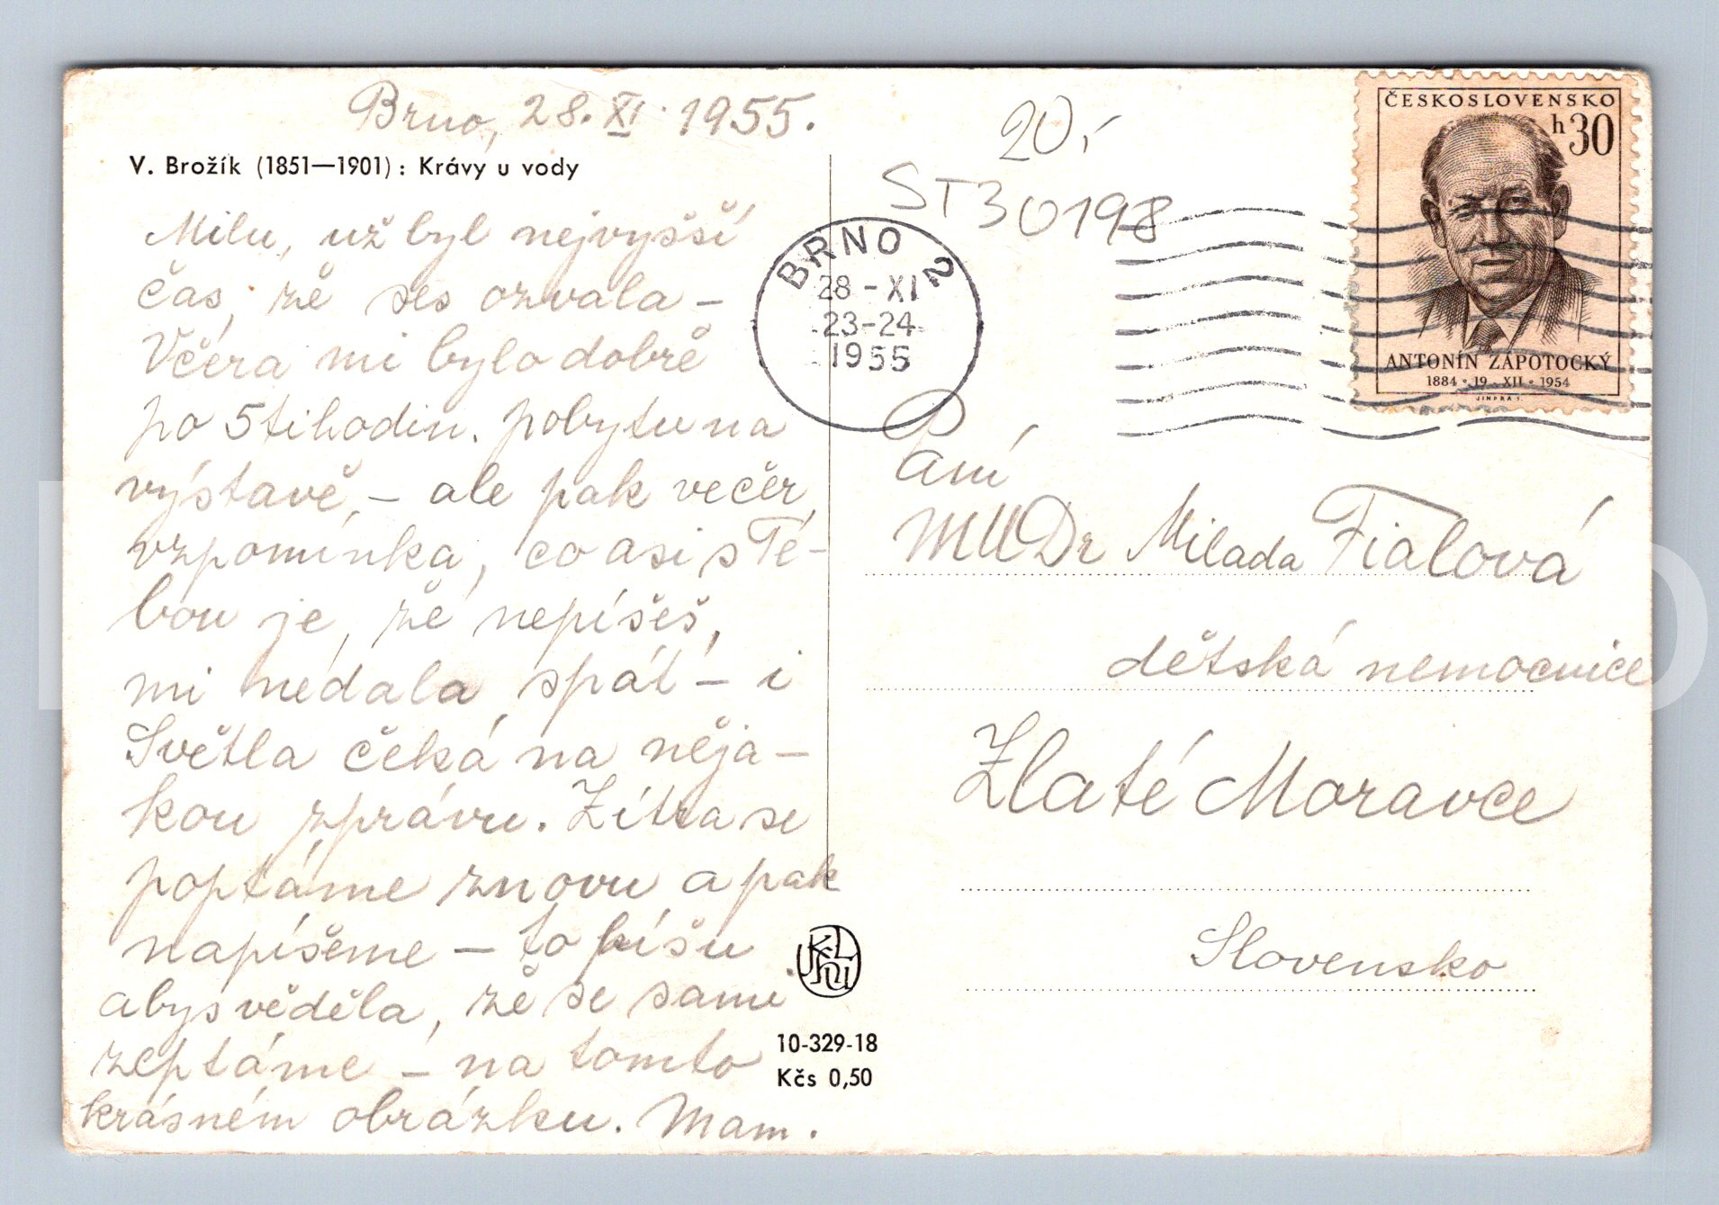 Brno, 28. XI. 1955.
V. Brožík (1851—1901): Krávy u vody
Milu, už byl nejvyšší
čas, že ses ozvala –
Včera mi bylo dobře
po 5ti hodin. pobytu na
výstavě, – ale pak večer,
vzpomínka, co asi s Te-
bou je, že nepíšeš,
mi nedala spát – i
Světla čeká na něja-
kou zprávu. Zítra se
poptáme znovu a pak
napíšeme – to píšu
abys věděla, že se sami
zeptáme – na tomto
krásném obrázku. Mam.
10-329-18
Kčs 0,50
20,-
ST30198
BRNO 2
28-XI
23-24
1955
ČESKOSLOVENSKO
h 30
ANTONÍN ZÁPOTOCKÝ
1884 · 19 · XII · 1954
Paní
MUDr Milada Fialová
dětská nemocnice
Zlaté Moravce
Slovensko